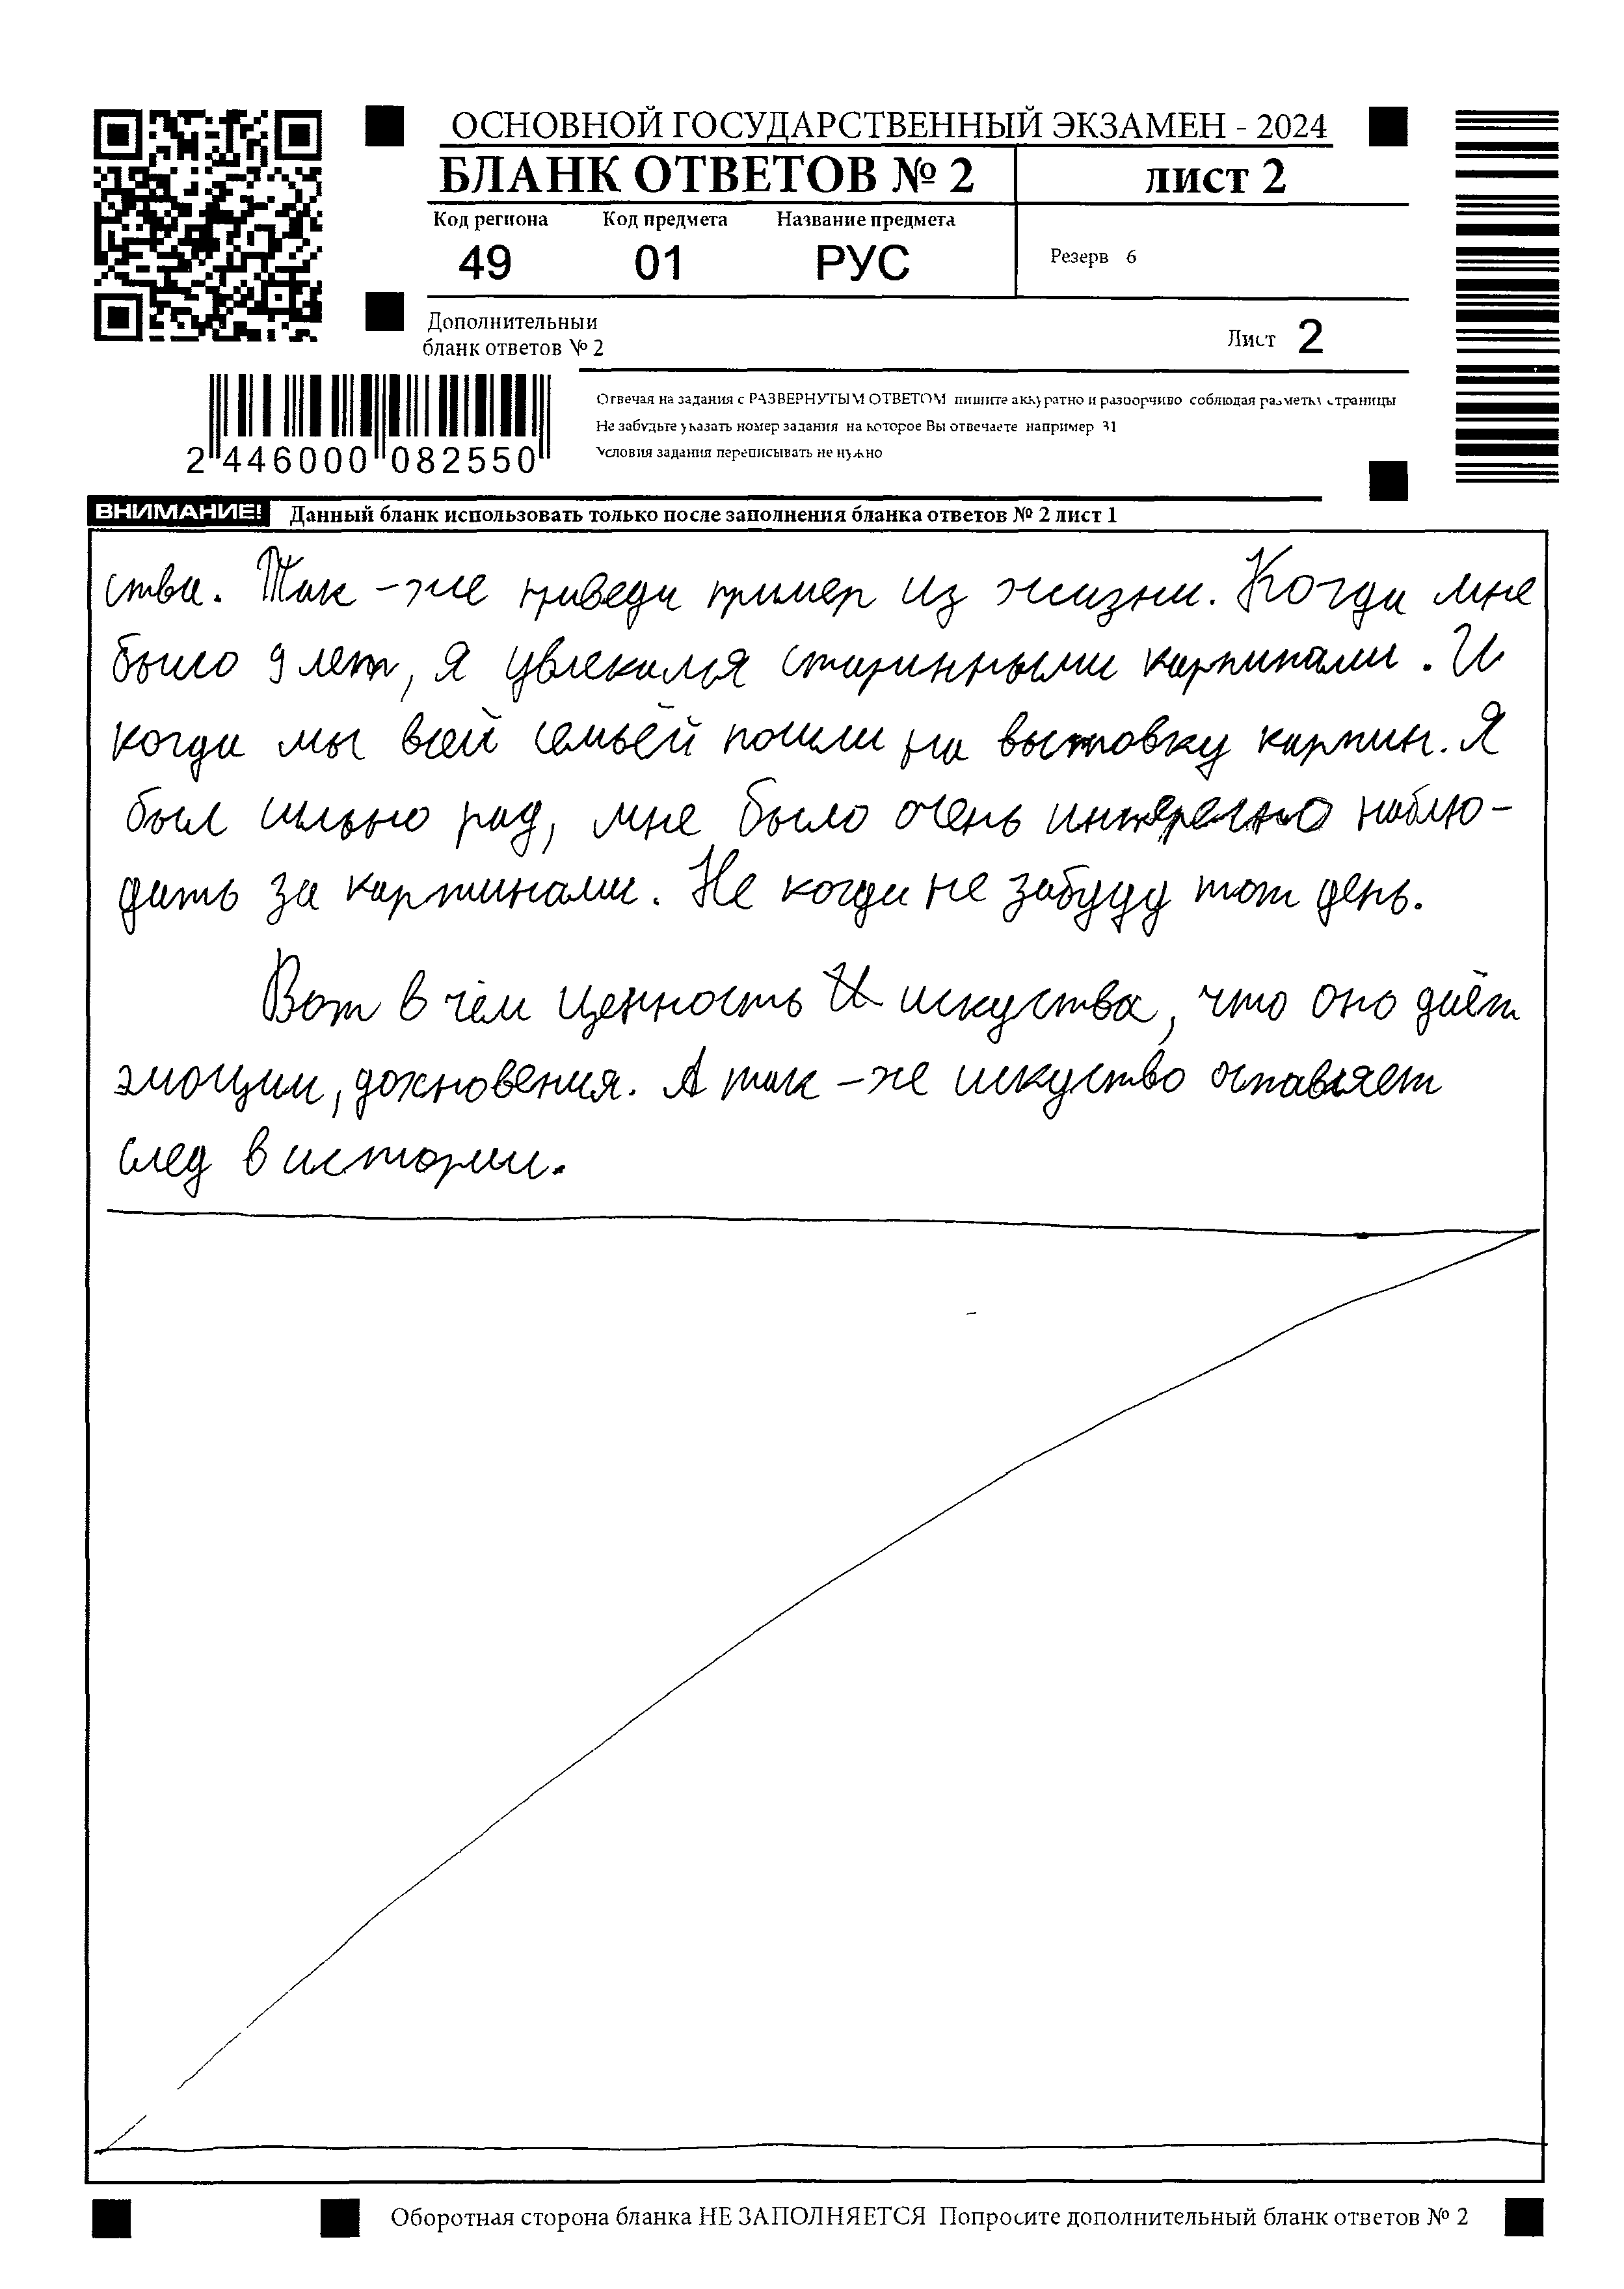 ОСНОВНОЙ ГОСУДАРСТВЕННЫЙ ЭКЗАМЕН - 2024
БЛАНК ОТВЕТОВ № 2
лист 2
Код региона Код предмета Название предмета
49 01 РУС
Резерв 6
Дополнительный
бланк ответов № 2
Лист 2
Отвечая на задания с РАЗВЕРНУТЫМ ОТВЕТОМ пишите аккуратно и разборчиво соблюдая разметку страницы
Не забудьте указать номер задания на которое Вы отвечаете например 31
Условия задания переписывать не нужно
2 446000 082550
ВНИМАНИЕ! Данный бланк использовать только после заполнения бланка ответов № 2 лист 1
ства. Так -же приведи пример из жизни. Когда мне
было 9 лет, я увлекался старинными картинами. И
когда мы всей семьёй пошли на выставку картин. Я
был сильно рад, мне было очень интересно наблю-
дать за картинами. Не когда не забуду тот день.
Вот в чём ценность искуства, что оно даёт
эмоции, дохновения. А так -же искуство оставляет
след в истории.
Оборотная сторона бланка НЕ ЗАПОЛНЯЕТСЯ Попросите дополнительный бланк ответов № 2